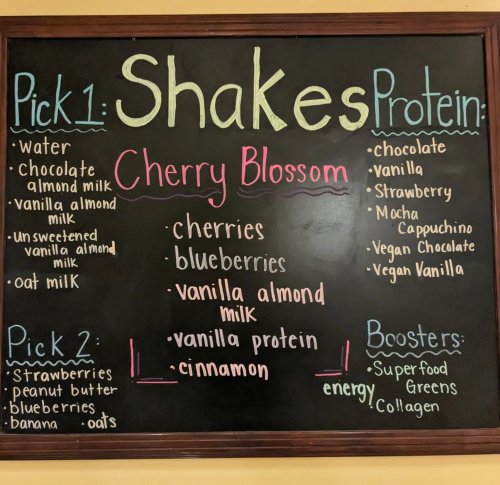 Shakes
Pick 1:
• Water
• Chocolate
almond milk
• vanilla almond
milk
• unsweetened
vanilla almond
milk
• oat milk
Pick 2:
• Strawberries
peanut butter
• blueberries
• banana • oats
Cherry Blossom
• cherries
• blueberries
• vanilla almond
milk
• vanilla protein
• cinnamon
Protein:
• chocolate
• vanilla
• Strawberry
• Mocha
Cappuchino
• Vegan Chocolate
• Vegan Vanilla
Boosters:
• Superfood
Greens
energy
• Collagen